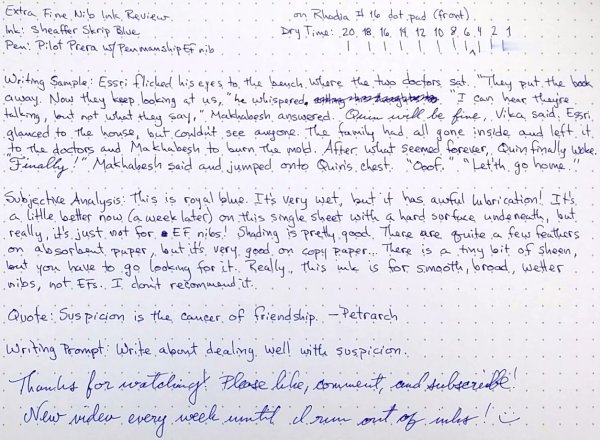 Extra Fine Nib Ink Review on Rhodia #16 dot pad (front).
Ink: Sheaffer Skrip Blue Dry Time: 20 18 16 14 12 10 8 6 4 2 1
Pen: Pilot Prera w/ Penmanship EF nib
Writing Sample: Essri flicked his eyes to the bench where the two doctors sat. "They put the book
away. Now they keep looking at us," he whispered. "I can hear they're
talking, but not what they say," Makhabesh answered. Quin will be fine, Vika said. Essri
glanced to the house, but couldn't see anyone. The family had all gone inside and left it
to the doctors and Makhabesh to burn the mold. After what seemed forever, Quin finally woke.
"Finally!" Makhabesh said and jumped onto Quin's chest. "Ooof." "Let'th go home."
Subjective Analysis: This is royal blue. It's very wet, but it has awful lubrication! It's
a little better now (a week later) on this single sheet with a hard surface underneath, but
really, it's just not for EF nibs! Shading is pretty good. There are quite a few feathers
on absorbent paper, but it's very good on copy paper... There is a tiny bit of sheen,
but you have to go looking for it. Really, this ink is for smooth, broad, wetter
nibs, not EFs. I don't recommend it.
Quote: Suspicion is the cancer of friendship. —Petrarch
Writing Prompt: Write about dealing well with suspicion.
Thanks for watching! Please like, comment, and subscribe!
New video every week until I run out of inks! :)